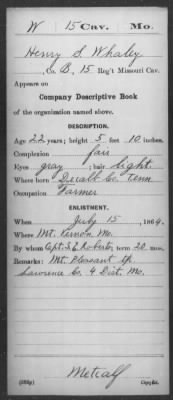 W 15 Cav. Mo.
Henry S. Whaley
, Co. B, 15 Reg't Missouri Cav.
Appears on
Company Descriptive Book
of the organization named above.
DESCRIPTION.
Age 22 years; height 5 feet 10 inches.
Complexion fair
Eyes gray; hair light.
Where born Decalb Co. Tenn
Occupation Farmer
ENLISTMENT.
When July 15, 1864.
Where Mt. Vernon Mo.
By whom Capt. S. E. Roberts; term 20 mos.
Remarks: Mt. Pleasant Tp.
Lawrence Co. 4 Dist. Mo.
Metcalf
Copyist.